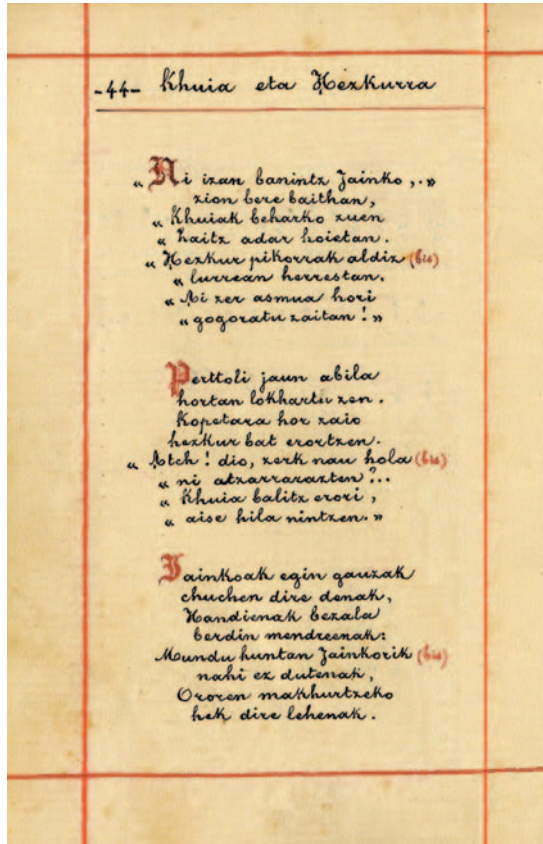 -44- Khuia eta Hezkurra
"Ni izan banintz Jainko,.."
zion bere baithan,
"Khuiak beharko zuen
"haitz adar hoietan.
"Hezkur pikorrak aldiz (bis)
"lurrean herrestan.
"Ai zer asmua hori
"gogoratu zaitan!"
Perttoli jaun abila
hortan lokhartu zen.
Kopetara hor zaio
hezkur bat erortzen.
"Atch! dio, zerk nau hola (bis)
"ni atzarrarazten?..
"Khuia balitz erori,
"aise hila nintzen."
Jainkoak egin gauzak
chuchen dire denak,
Handienak bezala
berdin mendreenak:
Mundu huntan Jainkorik (bis)
nahi ez dutenak,
Ororen makhurtzeko
hek dire lehenak.